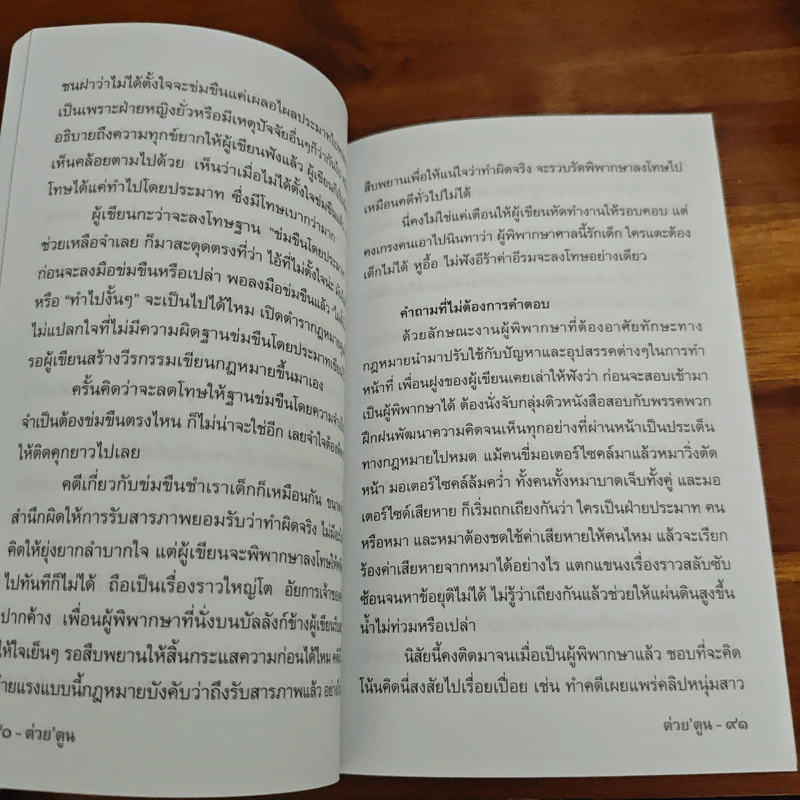 ชนฝาว่าไม่ได้ตั้งใจจะข่มขืนแค่เผลอไผลประมาทไป
เป็นเพราะฝ่ายหญิงยั่วหรือมีเหตุปัจจัยอื่นๆก็ว่ากันไป
อธิบายถึงความทุกข์ยากให้ผู้เขียนฟังแล้ว ผู้เขียนก็
เห็นคล้อยตามไปด้วย เห็นว่าเมื่อไม่ได้ตั้งใจข่มขืน
โทษได้แค่ทำไปโดยประมาท ซึ่งมีโทษเบากว่ามาก
ผู้เขียนกะว่าจะลงโทษฐาน "ข่มขืนโดยประมาท
ช่วยเหลือจำเลย ก็มาสะดุดตรงที่ว่า ไอ้ที่ไม่ตั้งใจน่ะ
ก่อนจะลงมือข่มขืนหรือเปล่า พอลงมือข่มขืนแล้ว
หรือ "ทำไปงั้นๆ" จะเป็นไปได้ไหม เปิดตำรากฎหมาย
ไม่แปลกใจที่ไม่มีความผิดฐานข่มขืนโดยประมาท
รอผู้เขียนสร้างวีรกรรมเขียนกฎหมายขึ้นมาเอง
ครั้นคิดว่าจะลดโทษให้ฐานข่มขืนโดยความจำเป็น
จำเป็นต้องข่มขืนตรงไหน ก็ไม่น่าจะใช่อีก เลยจำใจต้อง
ให้ติดคุกยาวไปเลย
คดีเกี่ยวกับข่มขืนชำเราเด็กก็เหมือนกัน
สำนึกผิดให้การรับสารภาพยอมรับว่าทำผิดจริง ไม่มี
คิดให้ยุ่งยากลำบากใจ แต่ผู้เขียนจะพิพากษาลงโทษ
ไปทันทีก็ไม่ได้ ถือเป็นเรื่องราวใหญ่โต อัยการเจ้าของ
ปากค้าง เพื่อนผู้พิพากษาที่นั่งบนบัลลังก์ข้างผู้เขียน
ให้ใจเย็นๆ รอสืบพยานให้สิ้นกระแสความก่อนได้ไหม
ายแรงแบบนี้กฎหมายบังคับว่าถึงรับสารภาพแล้ว
๐ - ต่วย'ตูน
สืบพยานเพื่อให้แน่ใจว่าทำผิดจริง จะรวบรัดพิพากษาลงโทษไป
เหมือนคดีทั่วไปไม่ได้
นี่คงไม่ใช่แค่เตือนให้ผู้เขียนหัดทำงานให้รอบคอบ แต่
คงเกรงคนเอาไปนินทาว่า ผู้พิพากษาศาลนี้รักเด็ก ใครแตะต้อง
เด็กไม่ได้ หูอื้อ ไม่ฟังอีร้าค่าอีรมจะลงโทษอย่างเดียว
คำถามที่ไม่ต้องการคำตอบ
ด้วยลักษณะงานผู้พิพากษาที่ต้องอาศัยทักษะทาง
กฎหมายนำมาปรับใช้กับปัญหาและอุปสรรคต่างๆในการทำ
หน้าที่ เพื่อนฝูงของผู้เขียนเคยเล่าให้ฟังว่า ก่อนจะสอบเข้ามา
เป็นผู้พิพากษาได้ ต้องนั่งจับกลุ่มติวหนังสือสอบกับพรรคพวก
ฝึกฝนพัฒนาความคิดจนเห็นทุกอย่างที่ผ่านหน้าเป็นประเด็น
ทางกฎหมายไปหมด แม้คนขี่มอเตอร์ไซคล์มาแล้วหมาวิ่งตัด
หน้า มอเตอร์ไซคล์ล้มคว่ำ ทั้งคนทั้งหมาบาดเจ็บทั้งคู่ และมอ
เตอร์ไซด์เสียหาย ก็เริ่มถกเถียงกันว่า ใครเป็นฝ่ายประมาท คน
หรือหมา และหมาต้องชดใช้ค่าเสียหายให้คนไหม แล้วจะเรียก
ร้องค่าเสียหายจากหมาได้อย่างไร แตกแขนงเรื่องราวสลับซับ
ซ้อนจนหาข้อยุติไม่ได้ ไม่รู้ว่าเถียงกันแล้วช่วยให้แผ่นดินสูงขึ้น
น้ำไม่ท่วมหรือเปล่า
นิสัยนี้คงติดมาจนเมื่อเป็นผู้พิพากษาแล้ว ชอบที่จะคิด
โน้นคิดนี่สงสัยไปเรื่อยเปื่อย เช่น ทำคดีเผยแพร่คลิปหนุ่มสาว
ต่วย'ตูน - ๙๑